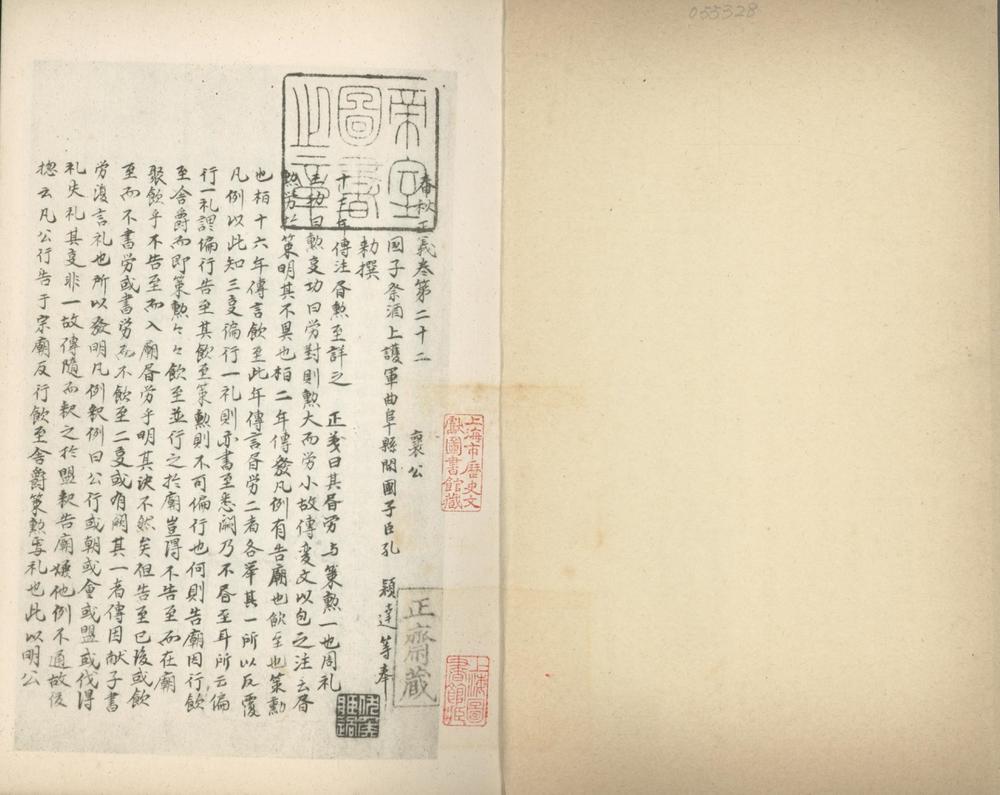 055328
帝室圖書之章
春秋正義卷第二十二
襄公
國子祭酒上護軍曲阜縣開國子臣孔穎達等奉
勅撰
十三年傳注書勲至詳之 正義曰其書勞与策勲一也周礼
王功曰勲事功曰労對則勲大而労小故傳変文以包之注云書
勲勞於策明其不異也桓二年傳發凡例有告廟也飲至也策勲
也桓十六年傳言飲至此年傳言書労二者各舉其一所以反覆
凡例以此知三事偏行一礼則亦書至悉闕乃不書至耳所云偏
行一礼謂偏行告至其飲至策勲則不可偏行也何則告廟因行飲
至舍爵而即策勲々々飲至並行之於廟豈得不告至而在廟
聚飲乎不告至而入廟書労乎明其決不然矣但告至已後或飲
至而不書労或書労而不飲至二事或有闕其一者傳因献子書
労復言礼也所以發明凡例釈例曰公行或朝或會或盟或伐得
礼失礼其事非一故傳隨而釈之於盟釈告廟嫌他例不通故復
捴云凡公行告于宗廟反行飲至舍爵策勲焉礼也此以明公
正齋藏
上海市歷史文獻圖書館藏
上海圖書館藏